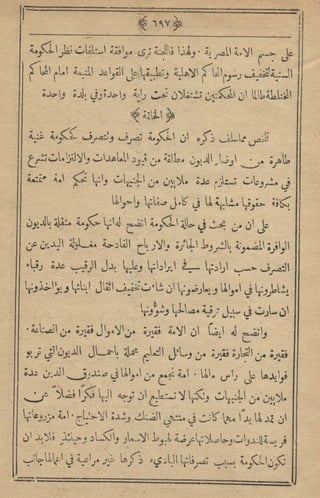 ﴿ ٦٩٧ ﴾
على جسم الامة المصرية . ولهذا فاللجنة ترى موافقة استلفات نظر الحكومة
السنية لتخفيف رسوم المحاكم الاهلية وتطبيقها على القواعد المتبعة امام المحاكم
المختلطة طالما ان المحكمتين تشتغلان تحت راية واحدة وفي بلدة واحدة
﴿ الخاتمة ﴾
تلخص مما سلف ذكره ان الحكومة تصرف وتتصرف كحكومة غنية
طاهرة من اوضار الديون مطلقة من قيود المعاهدات والالتزامات تشرع
في مشروعات تستلزم عدة ملايين من الجنيهات وانها تحكم امة متمتعة
بكافة حقوقها مشابهة لها في كامل صفاتها واحوالها
على ان من بحث في حالة الحكومة اتضح له انها حكومة مثقلة بالديون
الوافرة المضمونة بالشروط الجائرة والارباح الفادحة مغلولة اليدين عن
التصرف حسب ارادتها في ايراداتها وعليها بدل الرقيب عدة رقباء
يشاطرونها في اموالها ويعارضونها ان شاءت تخفيف اثقال ابنائها ويؤاخذونها
ان سارت في سبيل ترقية مصالحها وشؤونها
واتضح له ايضا ان الامة فقيرة من الاموال فقيرة من الصناعة .
فقيرة من التجارة فقيرة من وسائل التعليم محملة باحمال الديون التي تربو
فوايدها على راس مالها . امة تجمع من اموالها في صندوق الدين عدة
ملايين من الجنيهات ولكنها لا تستطيع ان توجه اليها فكرا فضلا عن
ان تمد لها يدا مهما كانت في منتهى الضنك وشدة الاحتياج . امة مزروعاتها
فريسة للندوات وحاصلاتها عرضة لهبوط الاسعار والكساد وحينئذ فلابد ان
تكون الحكومة بسبب تصرفاتها البادىء ذكرها غير مراعية في اعمالها جانب